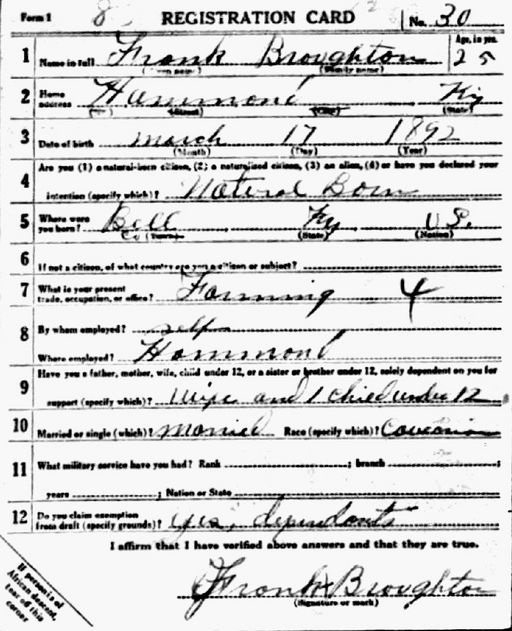 Form 1 REGISTRATION CARD No. 30
1 Name in full Frank Broughton Age, in yrs. 25
(Given name) (Family name)
2 Home address Hammond Ky
(No.) (Street) (City) (State)
3 Date of birth March 17 1892
(Month) (Day) (Year)
4 Are you (1) a natural-born citizen, (2) a naturalized citizen, (3) an alien, (4) or have you declared your
intention (specify which)? Natural Born
5 Where were you born? Bell Ky U.S.
Co (Town) (State) (Nation)
6 If not a citizen, of what country are you a citizen or subject?
7 What is your present trade, occupation, or office? Farming 4
8 By whom employed? self
Where employed? Hammond
9 Have you a father, mother, wife, child under 12, or a sister or brother under 12, solely dependent on you for
support (specify which)? Wife and 1 child under 12
10 Married or single (which)? Married Race (specify which)?
11 What military service have you had? Rank ; branch ;
years ; Nation or State
12 Do you claim exemption from draft (specify grounds)? yes, dependents
I affirm that I have verified above answers and that they are true.
Frank Broughton
(Signature or mark)
If person is of
African descent,
tear off this
corner